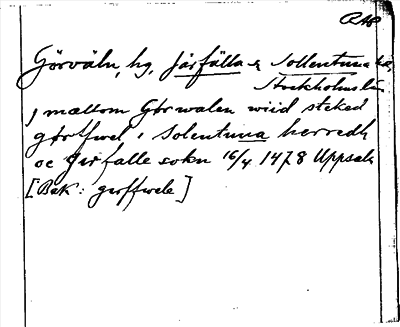 RAp
Görväln, hg, Järfälla & Sollentuna hd,
Stockholms län
j mællom Gørwalen wiid steked
gørffwel i Solentuna herredh
oc Jerfalle sokn 16/4 1478 Uppsala
[Bak: gerffwele]